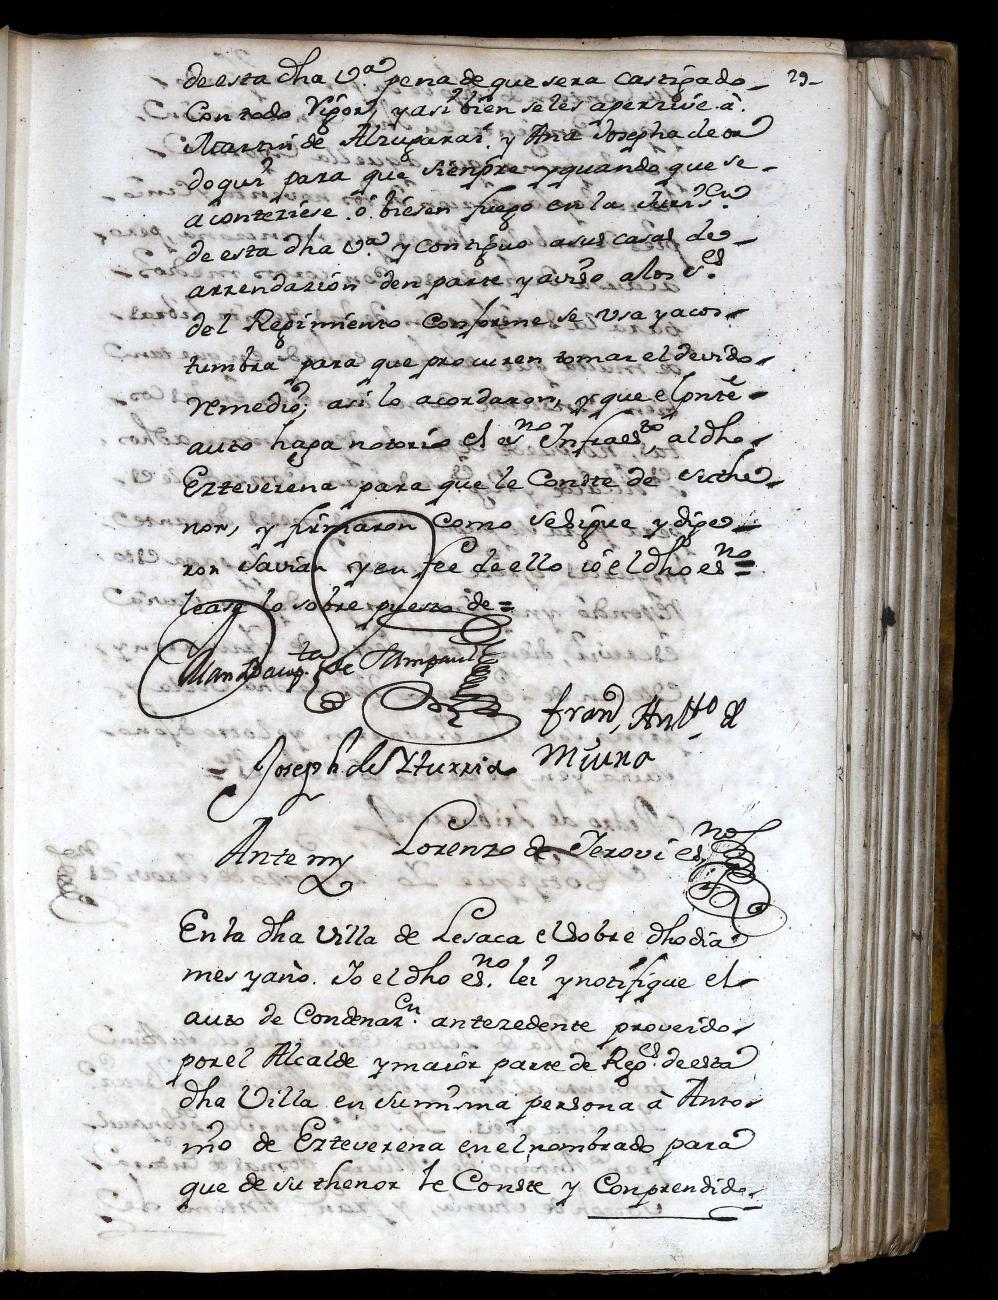 29
de esta dha va pena de que sera castigado
Con todo Rigor, y asi bien se les aperzive à
Martin de Alzugarai y Ana Josepha de or
doqui para que sienpre y quando que se
aconteziese ô biesen fuego en la Juris.on
de esta dha va. y contiguo a sus casas de
arrendazion den parte y aviso a los s.es
del Regimiento conforme se usa y acos
tumbra para que procuren tomar el devido
remedio, asi lo acordaron, y que el pnte
auto haga notorio el esno Infraesto al dho
Ezteverena para que le Conste de su the
nor, y firmaron como se sigue y dige
ron savian y en fee de ello io el dho esno =
lease lo sobre puesto de =
Juan Baupta de Sampaul
Franco Antto de
Joseph de Yturria Miura
Ante my Lorenzo de Jerovi esno
En la dha Villa de Lesaca el sobre dho dia
mes y año. Io el dho esno. lei y notifique el
auto de Condenazn. antezedente proveido
por el Alcalde y maior parte de Regres de esta
dha Villa en su misma persona à Anto
nio de Ezteverena en el nombrado para
que de su thenor le Conste y Conprendido